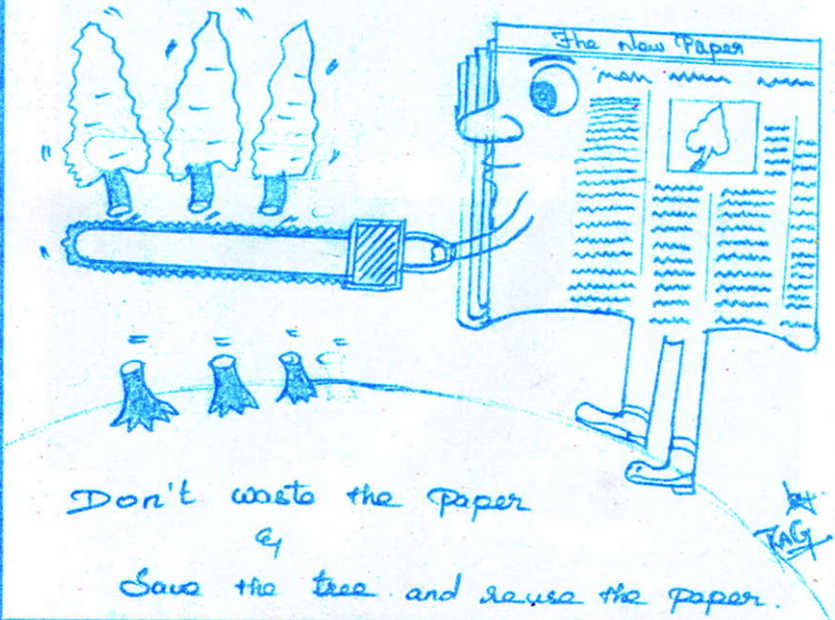 The New Paper
Don't waste the paper
&
Save the tree and reuse the paper.
RAG